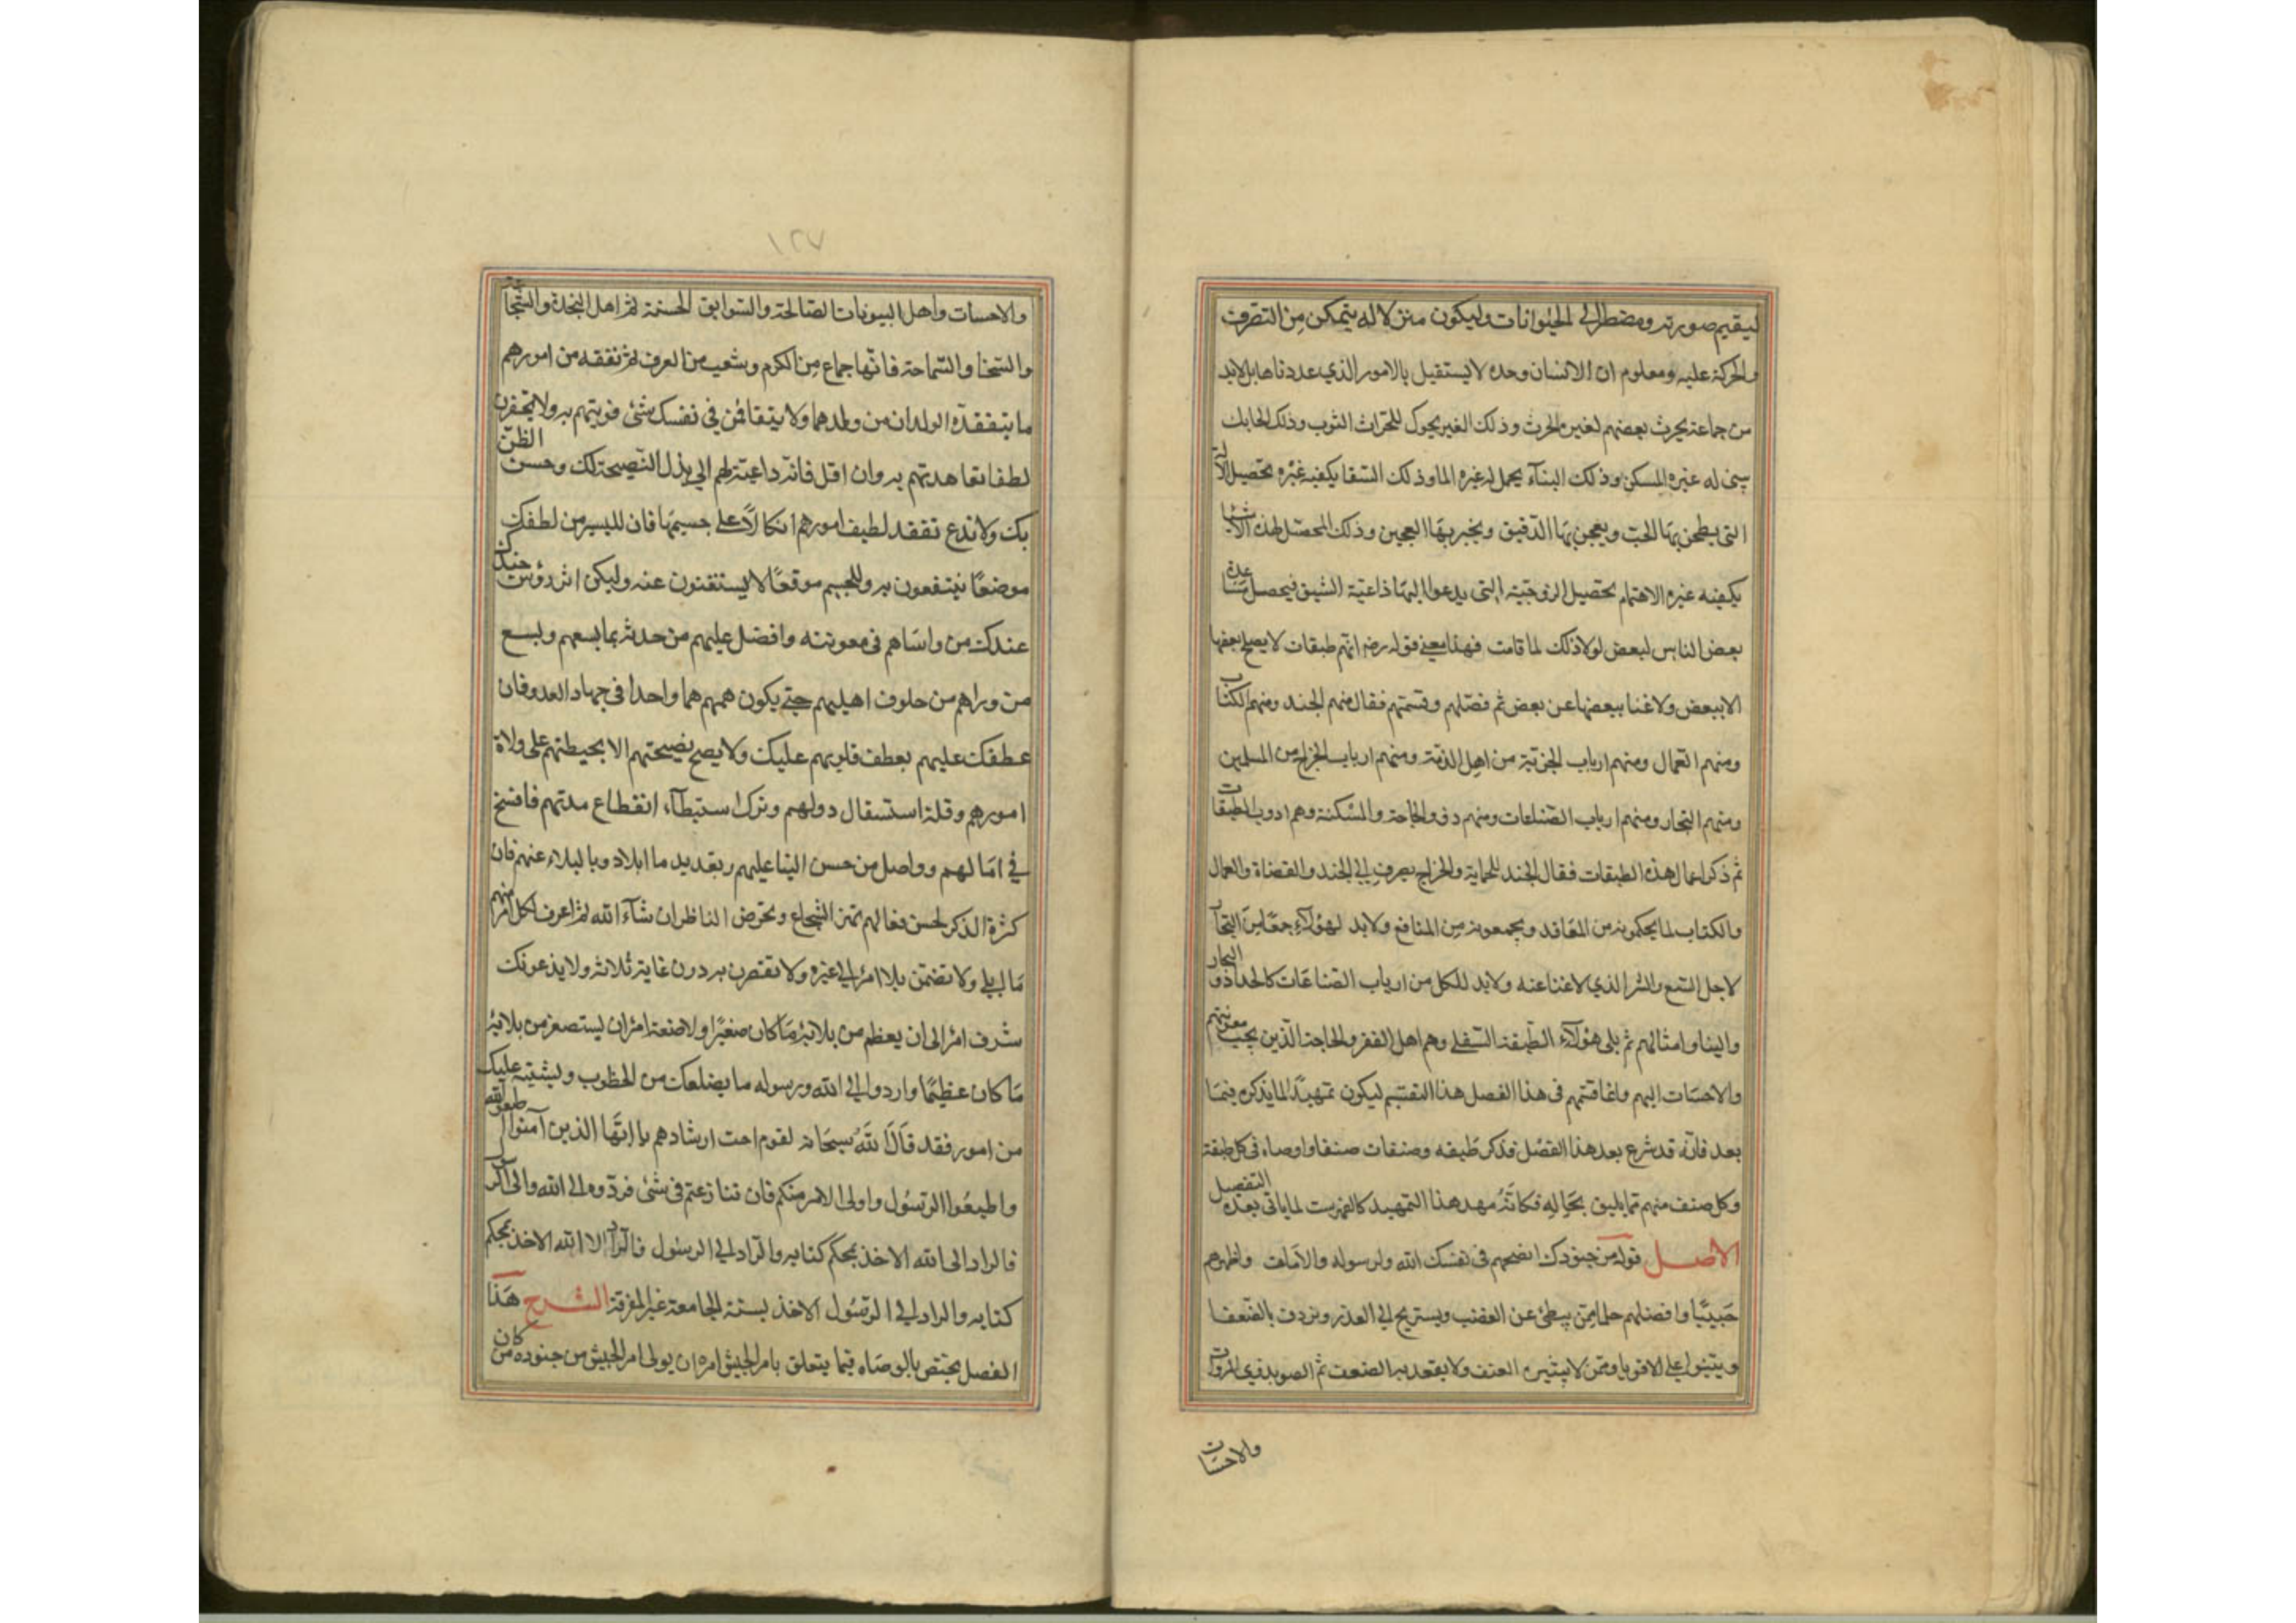 ليقيم صورته ومضطر الى الحيوانات وليكون منزلا له يتمكن من التصرف
والحركة عليه ومعلوم ان الانسان وحده لا يستقيل بالامور الذي عددناها بل لابد
من جماعة يحرث بعضهم لغيره الحرث وذلك الغير يحوك للحراث الثوب وذلك الحايك
يبنى له غيره المسكن وذلك البناء يحمل له غيره الما وذلك السقا يكفيه غيره تحصيل الالة
التى يطحن بها الحب ويعجن بها الدقيق ويخبر بها العجين وذلك المحصل لهذه الاشيا
يكفيه غيره الاهتمام بتحصيل الزوجية التى يدعوا اليها داعية الشبق فيحصل مساعدة
بعض الناس لبعض لولا ذلك لما قامت فهذا معنى قوله رضه انهم طبقات لا يصلح بعضها
الا ببعض ولا غنا ببعضها عن بعض ثم فصلهم وقسمتهم فقال منهم الجند ومنهم الكتاب
ومنهم العمال ومنهم ارباب الجزية من اهل الذمة ومنهم ارباب الخراج من المسلمين
ومنهم التجار ومنهم ارباب الصناعات ومنهم ذوو الحاجة والمسكنة وهم ادون الطبقات
ثم ذكر اعمال هذه الطبقات فقال الجند للحماية والخراج يصرف الى الجند والقضاة والعمال
والكتاب لما يحكمونه من المعاقد ويجمعونه من المنافع ولابد لهؤلاء جمعا من التجار
لاجل البيع والشرا الذي لا غنا عنه ولابد للكل من ارباب الصناعات كالحداد والنجار
والبنا وامثالهم ثم يلى هؤلاء الطبقة السفلى وهم اهل الفقر والحاجة الذين يجب معونتهم
والاحسان اليهم وانما قسمهم فى هذا الفصل هذا التقسيم ليكون تمهيدا لما يذكره فيما
بعد فانه قد شرع بعد هذا الفصل فذكر طبقه وصنفات صنفا واوصاه فى كل طبقة
وكل صنف منهم بما يليق بحاله فكانه مهد هذا التمهيد كالفهرست لما ياتى بعده التفصيل
الاصل قوله من جنودك انصحهم فى نفسك الله ولرسوله والامامك واطهرهم
حبيبا وافضلهم حلما ممن يبطئ عن الغضب ويستريح الى العذر ويردف بالضعفا
ويتنبوا على الاقويا وممن لا يثيره العنف ولا يقعد به الضعف ثم الصو بذوي المروات
والاحسان
١٢٧
والاحسان واهل البيوتات الصالحة والسوابق الحسنة ثم اهل النجدة والشجاعة
والسخا والسماحة فانها جماع من الكرم وشعب من العرف ثم تفقد من امورهم
ما يتفقده الولدان من ولدهما ولا يتفاقمن في نفسك شئ قويتهم به ولا تحقرن
لطفا تعاهدتهم به وان اقل فانه داعية لهم الى بذل النصيحة لك وحسن الظن
بك ولا تدع تفقد لطيف امورهم اتكالا على جسيمها فان لليسير من لطفك
موضعا ينتفعون به وللجسيم موقعا لا يستغنون عنه وليكن اثر رؤس جندك
عندك من واساهم فى معونته وافضل عليهم من جدته بما يسعهم ويسع
من وراهم من خلوف اهليهم حتى يكون همهم هما واحدا فى جهاد العدو فان
عطفك عليهم يعطف قلوبهم عليك ولا يصح نصيحتهم الا بحيطتهم على ولاة
امورهم وقلة استثقال دولهم وترك استبطآء انقطاع مدتهم فافسح
في امالهم وواصل من حسن الثنا عليهم وتعديد ما ابلا ذو البلاء منهم فان
كثرة الذكر لحسن فعالهم تهز الشجاع وتحرض الناظر ان شآء الله ثم اعرف لكل امرئ منهم
ما ابلى ولا تضمن بلا امرئ الى غيره ولا تقصرن به دون غاية بلائه ولا يدعونك
شرف امرئ الى ان يعظم من بلائه ما كان صغيرا ولا ضعة امرئ ان يستصغر من بلائه
ما كان عظيما واردد الى الله ورسوله ما يضلعك من الخطوب ويشتبه عليك
من امور فقد قال الله سبحانه لقوم احب ارشادهم يا ايها الذين آمنوا اطيعوا الله
واطيعوا الرسول واولى الامر منكم فان تنازعتم فى شئ فردوه الى الله والى الرسول
فالراد الى الله الاخذ بمحكم كتابه والراد الى الرسول فالراد الا الله الاخذ بمحكم
كتابه والراد الى الرسول الاخذ بسنته الجامعة غير المفرقة الشرح هذا
الفصل يختص بالوصاه فيما يتعلق بامر الجيش امره ان يولى امر الجيش من جنوده من كان